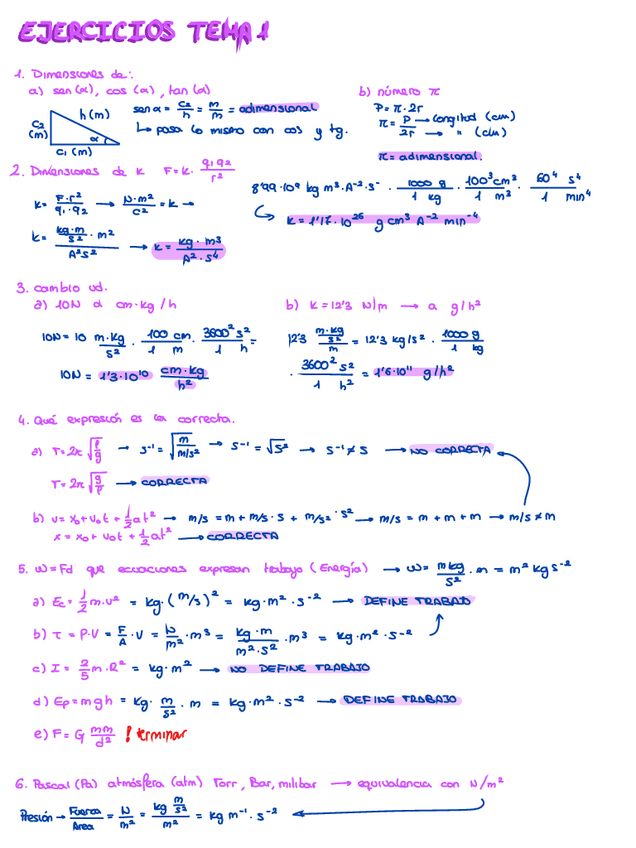 EJERCICIOS TEMA 1
1. Dimensiones de:
a) sen(α), cos(α), tan(α)
b) número π
C2 (m)
h (m)
α
C1 (m)
sen α = C2/h = m/m = adimensional
↳ pasa lo mismo con cos y tg.
P = π · 2r
π = P/2r → longitud (cm) → " (cm)
π = adimensional.
2. Dimensiones de K F = K · q1q2/r²
K = F·r²/q1·q2 → N·m²/C² = K →
K = (kg·m/s² · m²)/A²s² → K = kg·m³/A²·s⁴
8'99·10⁹ kg m³·A⁻²·s⁻ · 1000 g/1 kg · 100³cm³/1 m³ · 60⁴ s⁴/1 min⁴
K = 1'17·10²⁶ g cm³ A⁻² min⁻⁴
3. cambio ud.
a) 10N a cm·kg/h
b) K = 12'3 N/m → a g/h²
10N = 10 m·kg/s² · 100 cm/1 m · 3600² s²/1 h =
10N = 1'3·10¹⁰ cm·kg/h²
12'3 (m·kg/s²)/m = 12'3 kg/s² · 1000 g/1 kg
· 3600² s²/1 h² = 1'6·10¹¹ g/h²
4. Qué expresión es la correcta.
a) T = 2π √(p/g) → s⁻¹ = √(m/(m/s²)) → s⁻¹ = √s² → s⁻¹ ≠ s → NO CORRECTA
T = 2π √(g/p) → CORRECTA
b) v = x₀ + v₀t + 1/2 at² → m/s = m + m/s · s + m/s² · s² → m/s = m + m + m → m/s ≠ m
x = x₀ + v₀t + 1/2 at² → CORRECTA
5. W = Fd que ecuaciones expresan trabajo (Energía) → W = m kg/s² · m = m² kg s⁻²
a) Ec = 1/2 m·v² = kg·(m/s)² = kg·m²·s⁻² → DEFINE TRABAJO
b) τ = P·V = F/A · V = N/m² · m³ = kg·m/m²·s² · m³ = kg·m²·s⁻²
c) I = 2/5 m·R² = kg·m² → NO DEFINE TRABAJO
d) Ep = mgh = kg · m/s² · m = kg·m²·s⁻² → DEFINE TRABAJO
e) F = G mm/d² ! terminar
6. Pascal (Pa) atmósfera (atm) Torr, Bar, milibar → equivalencia con N/m²
Presión → Fuerza/Área = N/m² = (kg m/s²)/m² = kg m⁻¹·s⁻²